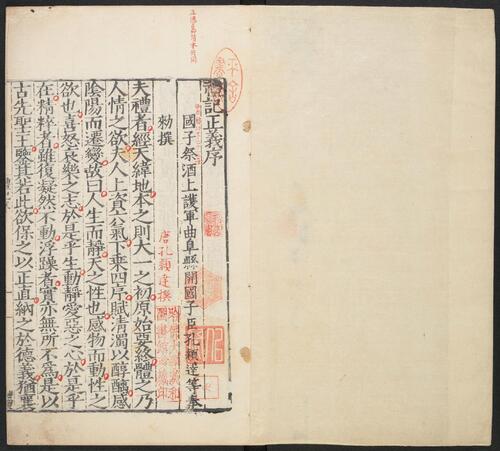 禮記正義序
國子祭酒上護軍曲阜縣開國子臣孔穎達等奉
勑撰
夫禮者經天緯地本之則大一之初原始要終體之乃
人情之欲夫人上資六氣下乘四序賦清濁以醇醨感
陰陽而遷變故曰人生而靜天之性也感物而動性之
欲也喜怒哀樂之志於是乎生動靜愛惡之心於是乎
在精粹者雖復凝然不動浮躁者實亦無所不爲是以
古先聖王鑒其若此欲保之以正直納之於德義猶襄
唐孔穎達撰